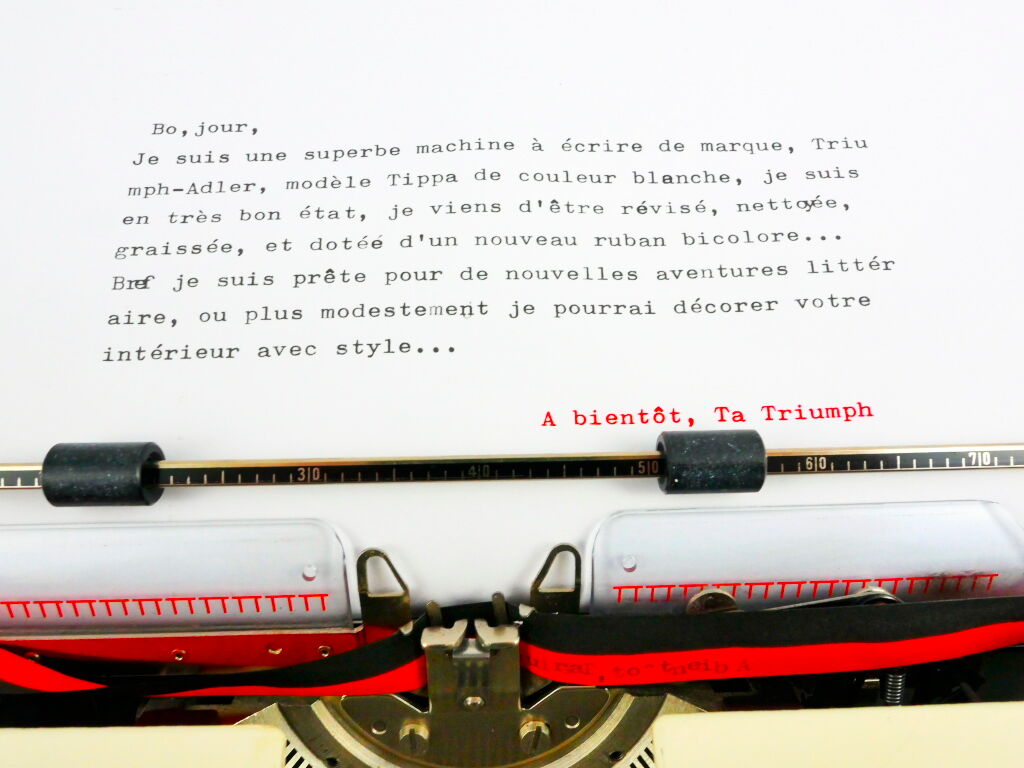 Bo,jour,
Je suis une superbe machine à écrire de marque, Triu
mph-Adler, modèle Tippa de couleur blanche, je suis
en très bon état, je viens d'être révisé, nettoyée,
graissée, et dotéé d'un nouveau ruban bicolore...
Bref je suis prête pour de nouvelles aventures littér
aire, ou plus modestement je pourrai décorer votre
intérieur avec style...
A bientôt, Ta Triumph
30 40 50 60 70